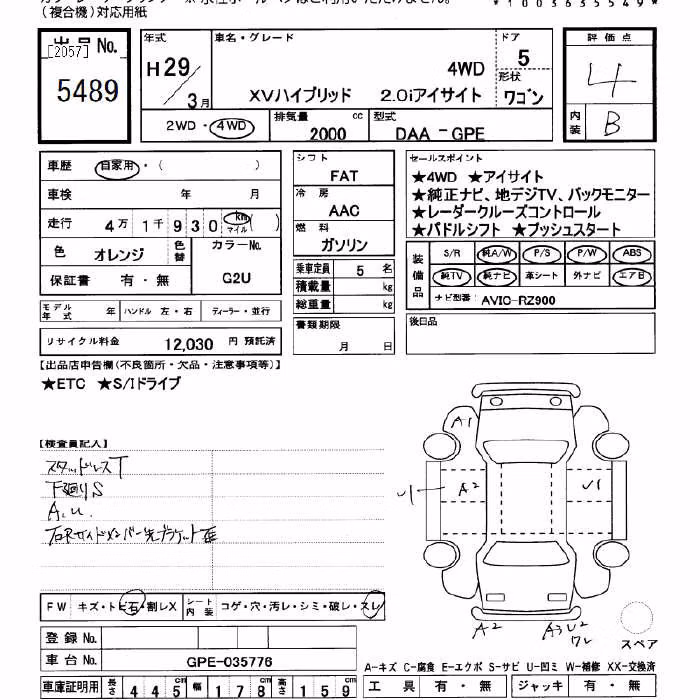 (複合機)対応用紙
*1003635549*
出品No.
[2057]
5489
年式
H29/3月
車名・グレード
4WD
XVハイブリッド 2.0iアイサイト
ドア
5
形状
ワゴン
2WD・4WD
排気量
2000
cc
型式
DAA-GPE
評価点
4
内装
B
車歴 自家用・( )
車検 年 月
走行 4万1千930 km マイル ( )
色 オレンジ 色替
カラーNo.
G2U
保証書 有・無
モデル年式 年 ハンドル 左・右 ディーラー・並行
リサイクル料金 12,030 円 預託済
シフト
FAT
冷房
AAC
燃料
ガソリン
乗車定員 5 名
積載量 kg
総重量 kg
書類期限
月 日
セールスポイント
★4WD ★アイサイト
★純正ナビ、地デジTV、バックモニター
★レーダークルーズコントロール
★パドルシフト ★プッシュスタート
装備品
S/R 純A/W P/S P/W ABS
純TV 純ナビ 革シート 外ナビ エアB
ナビ型番: AVIC-RZ900
後日品
【出品店申告欄(不良箇所・欠品・注意事項等)】
★ETC ★S/Iドライブ
【検査員記入】
スタッドレスT
下廻りS
A.U.
右Rサイドメンバー先ブラケット
A1
U1
A2
U1
A2
A3 U2
スペア
FW キズ・トビ石・割レX
シート内装 コゲ・穴・汚レ・シミ・破レ・スレ
登録No.
車台No. GPE-035776
車庫証明用 長さ 445 cm 幅 178 cm 高さ 159 cm
A-キズ C-腐食 E-エクボ S-サビ U-凹ミ W-補修 XX-交換済
工具 有・無 ジャッキ 有・無